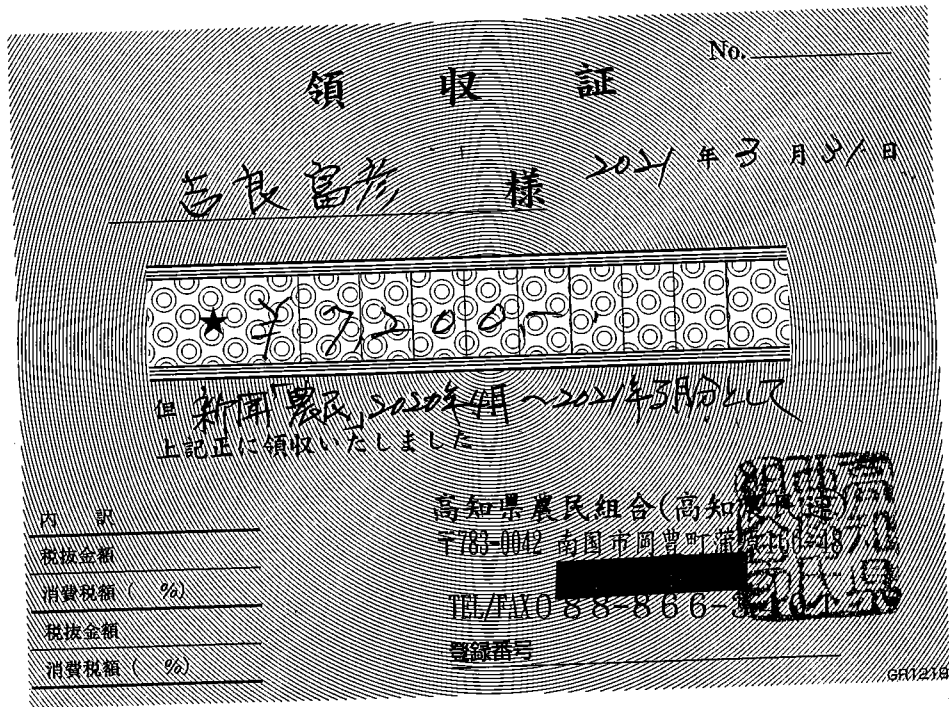 No.
領収証
2021年3月31日
吉良富彦 様
★ ¥7,200.-
但 新聞「農民」2020年4月〜2021年3月分として
上記正に領収いたしました
内訳
税抜金額
消費税額( %)
税抜金額
消費税額( %)
高知県農民組合(高知
〒783-0042 南国市岡豊町蒲
TEL/FAX088-866-
登録番号
GR1218